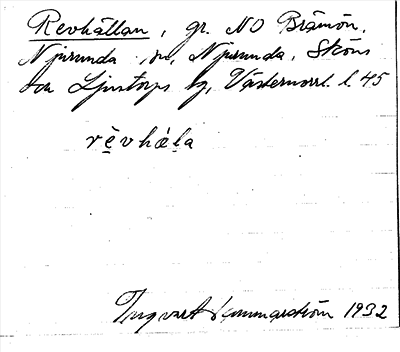 Revhällan, gr. NO Brämön,
Njurunda sn, Njurunda, Sköns
och Ljustorps tg, Västernorrl. l. 45
rèvhǽl̥a
Ingvart Hammarström 1932